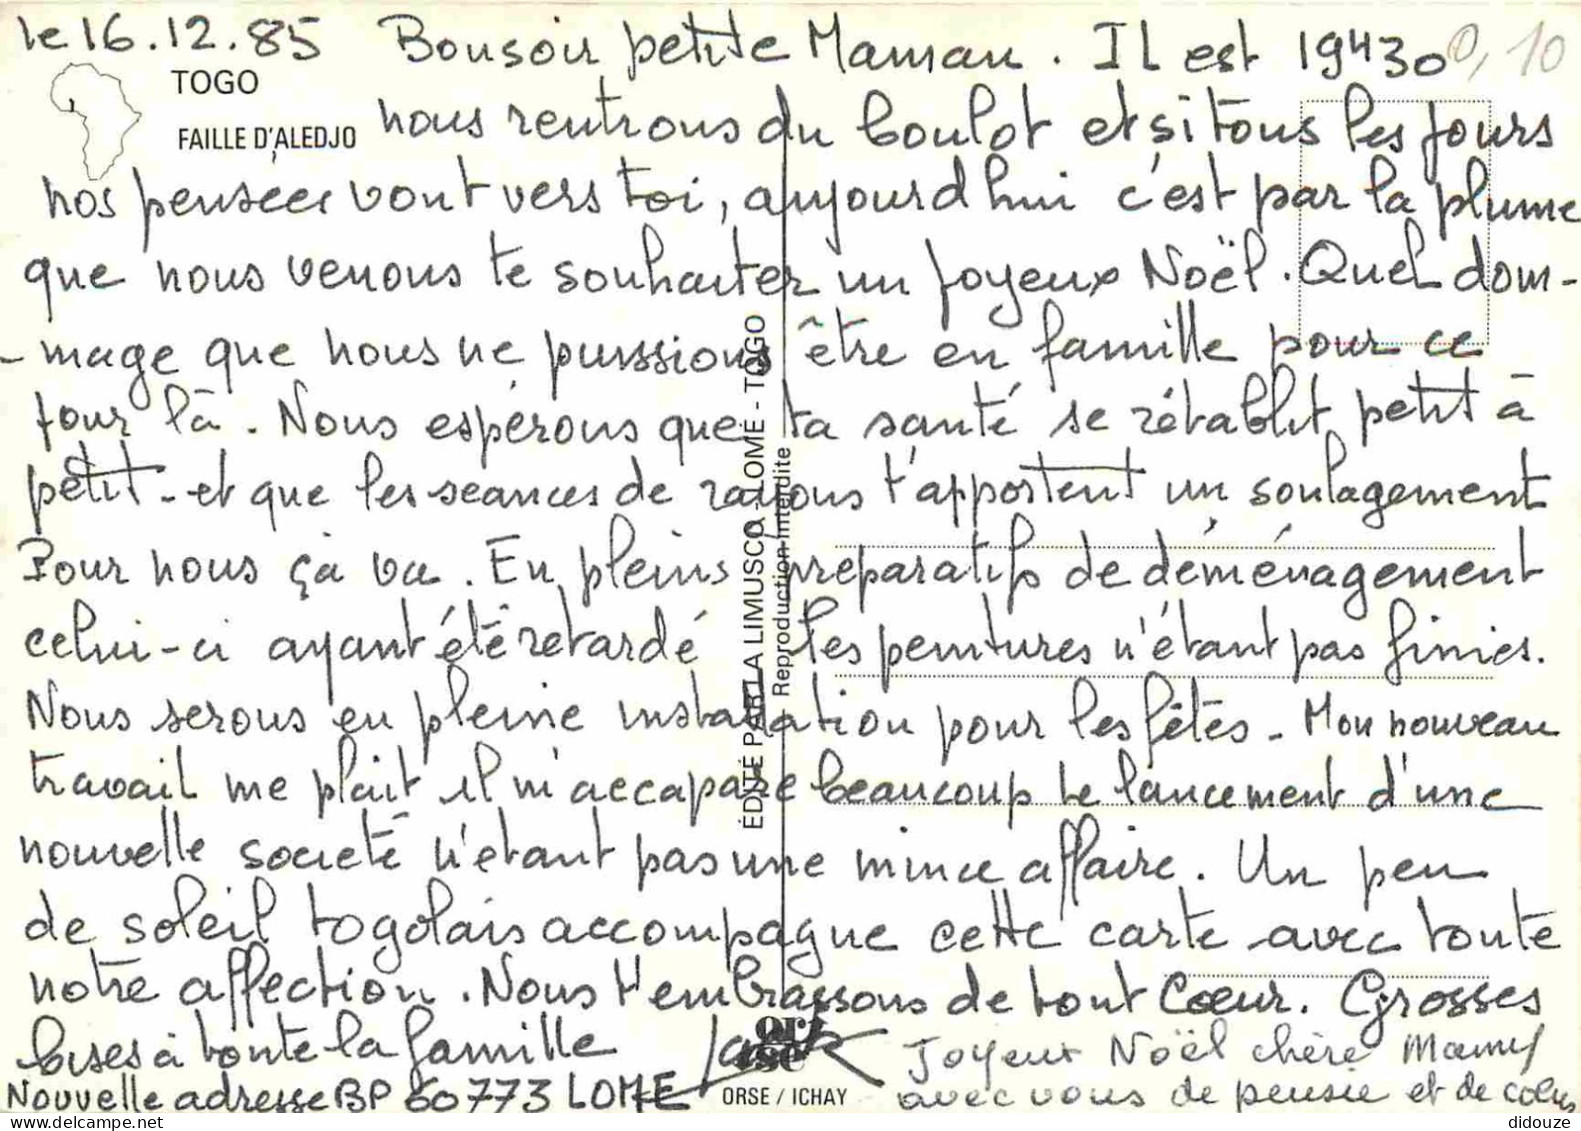 le 16.12.85 Bonsoir petite Maman. Il est 19H30 0,10
TOGO
FAILLE D'ALEDJO
nous rentrons du boulot et si tous les jours
nos pensées vont vers toi, aujourd'hui c'est par la plume
que nous venons te souhaiter un joyeux Noël. Quel dom-
-mage que nous ne puissions être en famille pour ce
jour là. Nous espérons que ta santé se rétablit petit à
petit - et que les séances de rayons t'apportent un soulagement
Pour nous ça va. En pleins préparatifs de déménagement
celui-ci ayant été retardé les peintures n'étant pas finies.
Nous serons en pleine installation pour les fêtes - Mon nouveau
travail me plait il m'accapare beaucoup le lancement d'une
nouvelle société n'étant pas une mince affaire. Un peu
de soleil togolais accompagne cette carte avec toute
notre affection. Nous t'embrassons de tout Cœur. Grosses
bises à toute la famille Jack
Joyeux Noël chère Mamy
avec vous de pensée et de cœur
Nouvelle adresse BP 60773 LOME
ÉDITÉ PAR LA LIMUSCO - LOMÉ - TOGO
Reproduction Interdite
or
se
ORSE / ICHAY
didouze